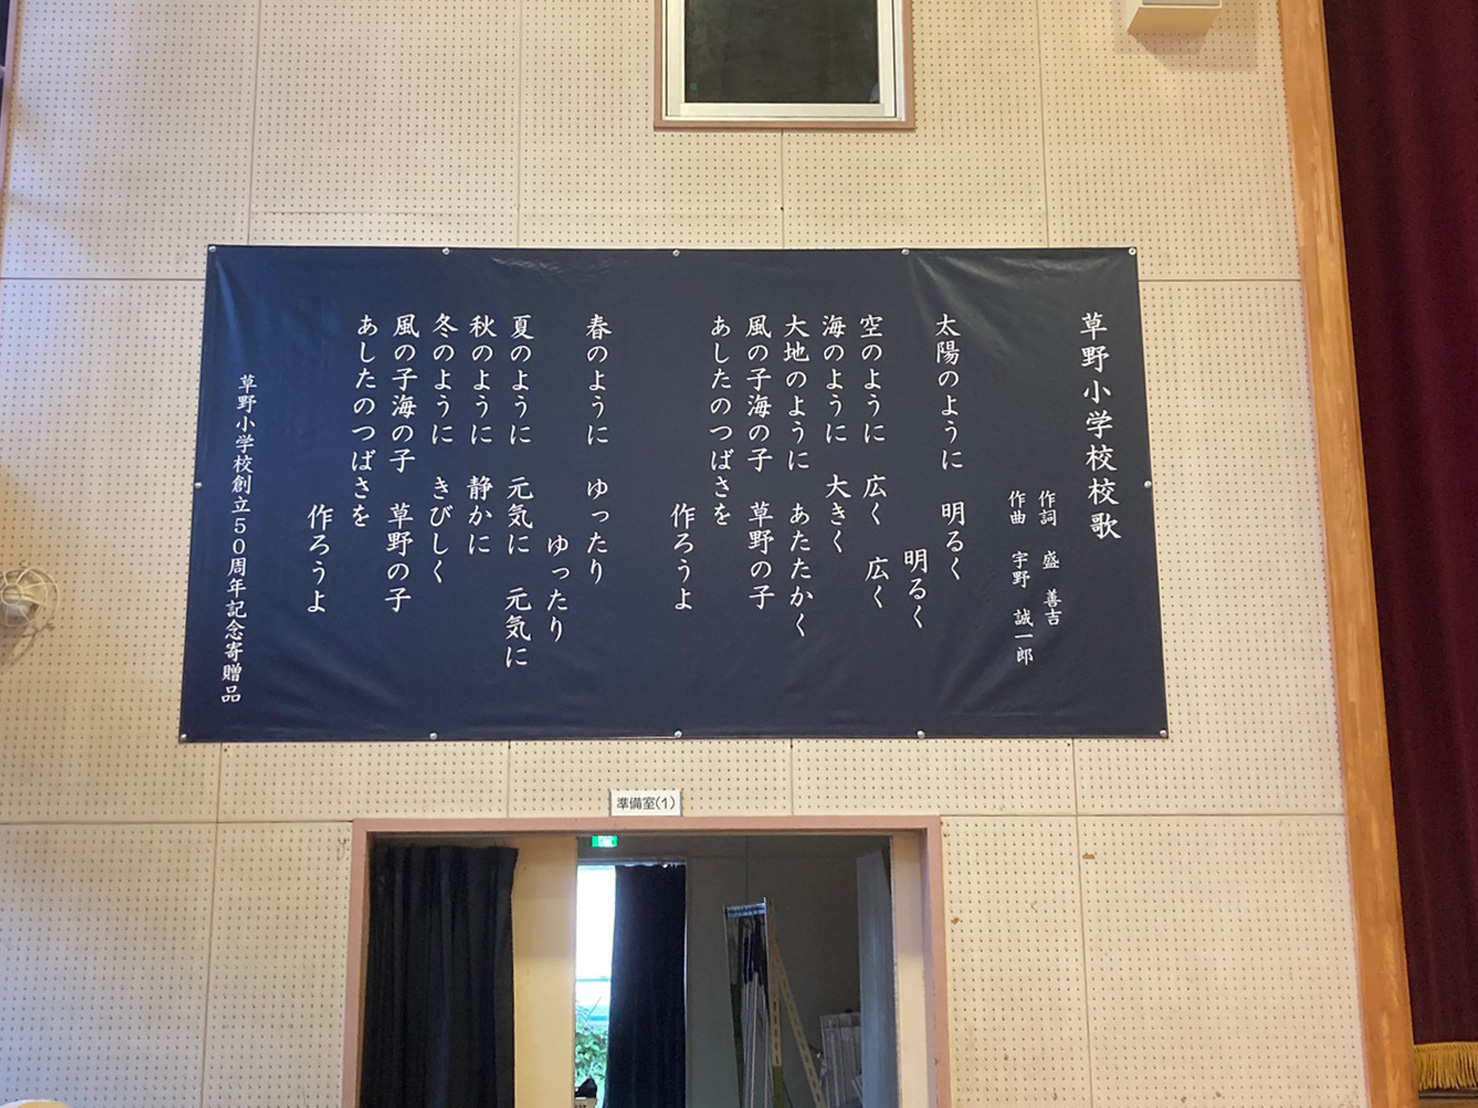 草野小学校校歌
作詞 盛 善吉
作曲 宇野 誠一郎
太陽のように 明るく
明るく
空のように 広く 広く
海のように 大きく
大地のように あたたかく
風の子海の子 草野の子
あしたのつばさを
作ろうよ
春のように ゆったり
ゆったり
夏のように 元気に 元気に
秋のように 静かに
冬のように きびしく
風の子海の子 草野の子
あしたのつばさを
作ろうよ
草野小学校創立50周年記念寄贈品
準備室(1)